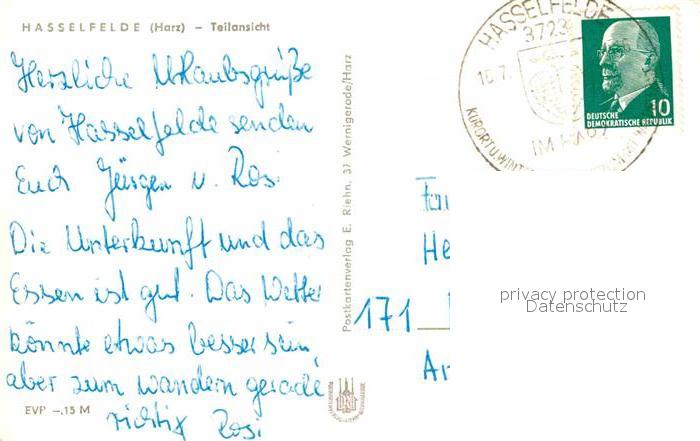 HASSELFELDE (Harz) – Teilansicht
Herzliche Urlaubsgrüße
von Hasselfelde senden
Euch Jürgen u. Rosi
Die Unterkunft und das
Essen ist gut. Das Wetter
könnte etwas besser sein,
aber zum wandern gerade
richtig Rosi
EVP –.15 M
Postkartenverlag E. Riehn, 37 Wernigerode/Harz
HASSELFELDE
3723
IM HARZ
DEUTSCHE
DEMOKRATISCHE REPUBLIK
10
Fam
He
171
privacy protection
Datenschutz